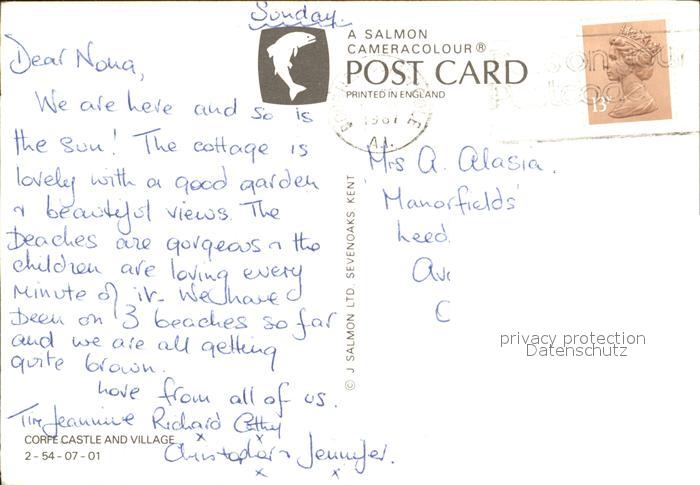 Sunday.
Dear Nona,
We are here and so is
the sun! The cottage is
lovely with a good garden
& beautiful views. The
beaches are gorgeous & the
children are loving every
minute of it. We have
been on 3 beaches so far
and we are all getting
quite brown.
Love from all of us.
Tim Jeannine Richard Cathy
Christopher & Jennifer.
x x
x x
CORFE CASTLE AND VILLAGE
2-54-07-01
© J SALMON LTD. SEVENOAKS KENT
A SALMON
CAMERACOLOUR®
POST CARD
PRINTED IN ENGLAND
1981
13P
Mrs A. Alasia.
Manorfields
Leed
privacy protection
Datenschutz